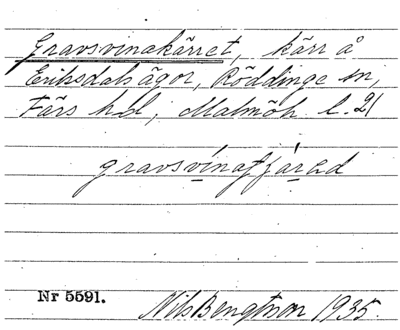 Gravsvinakärret, kärr å
Eriksdals ägor, Röddinge sn,
Färs hd, Malmöh. l. 21
gravsvinatjäred
Nr 5591.
Nils Bengtson 1935.